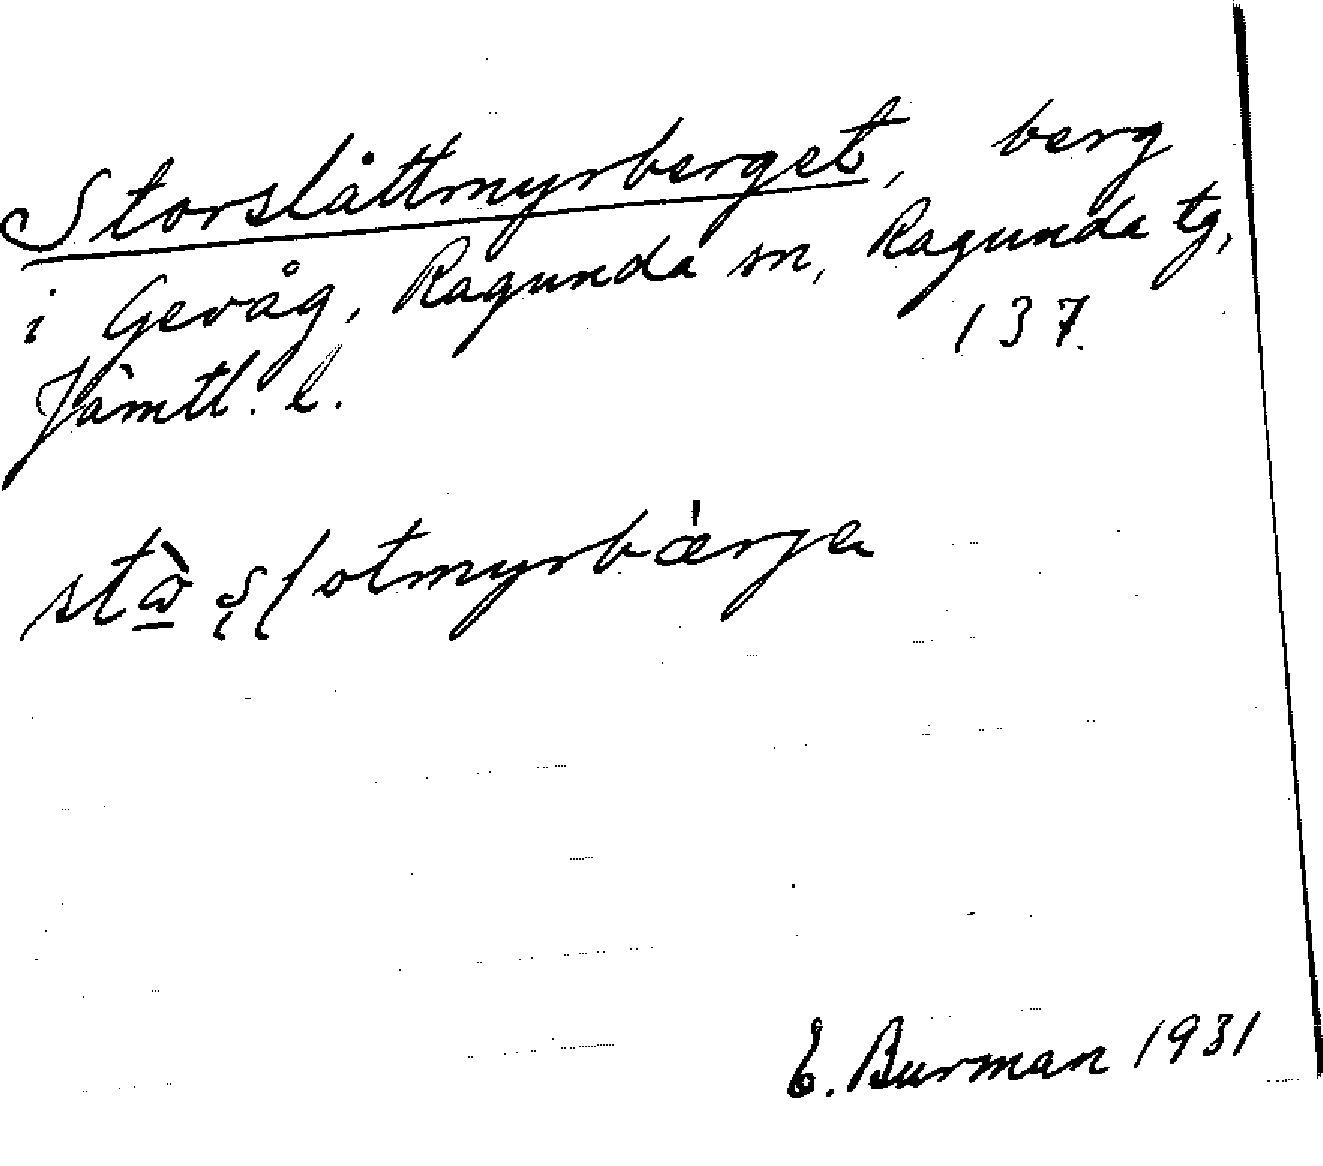 Storslåttmyrberget, berg
i Gevåg, Ragunda sn, Ragunda tg,
Jämtl. l. 137.
E. Burman 1931